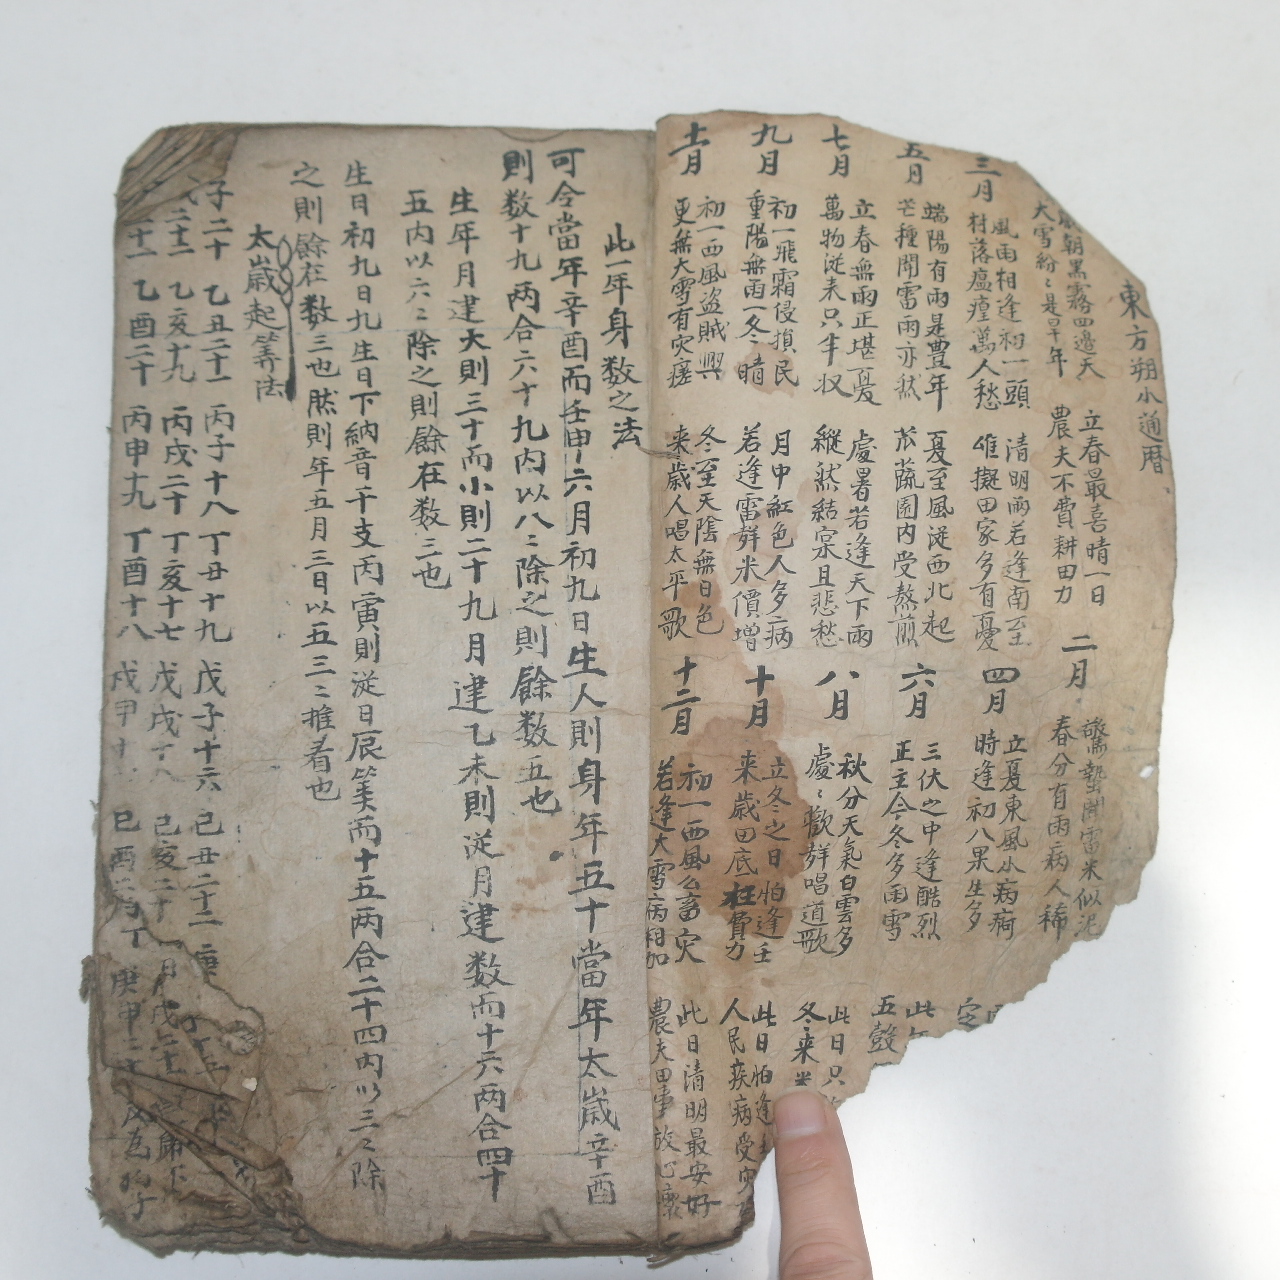 東方朔小通曆
歲朝黑霧四邊天
大雪紛〻是旱年
立春最喜晴一日
農夫不費耕田力
二月
驚蟄聞雷米似泥
春分有雨病人稀
三月
風雨相逢初一頭
村落瘟瘟萬人愁
清明雨若逢南至
田家多有憂
四月
立夏東風小病痾
時逢初八果生多
五月
端陽有雨是豊年
芒種聞雷雨亦然
夏至風從西北起
苽蔬園內受熬煎
六月
三伏之中逢酷烈
正主今冬多雨雪
此
五糓
七月
立春無雨正堪憂
萬物從来只半収
處暑若逢天下雨
縱然結宲且悲愁
八月
秋分天氣白雲多
處〻歡舞唱道歌
此日只
冬来米
九月
初一飛霜侵損民
重陽無雨一冬晴
月中紅色人多病
若逢雷舞米價增
十月
立冬之日怕逢壬
来歲田底枉費力
此日怕逢
人民疾病受灾
十一月
初一西風盜賊興
更無大雪有灾瘥
冬至天陰無日色
来歲人唱太平歌
十二月
初一西風么畜灾
若逢大雪病相加
此日清明最安好
農夫田事放心
此一年身数之法
可令當年辛酉而壬申六月初九日生人則身年五十當年太歲辛酉
則数十九两合六十九內以八〻除之則餘数五也
生年月建大則三十而小則二十九月建乙未則從月建数而十六两合四十
五內以六〻除之則餘在数三也
生日初九日九生日下納音干支丙寅則從日辰筭而十五两合二十四內以三〻除
之則餘在数三也然則年五月三日以五三〻推看也
太歲起筭法
子二十 乙丑二十一 丙子十八 丁丑十九 戊子十六 己丑二十二 庚
二十一 乙亥十九 丙戌二十 丁亥十七 戊戌十八 己亥二十
十一 乙酉二十 丙申十九 丁酉十八 戊申十 己酉 庚申二十